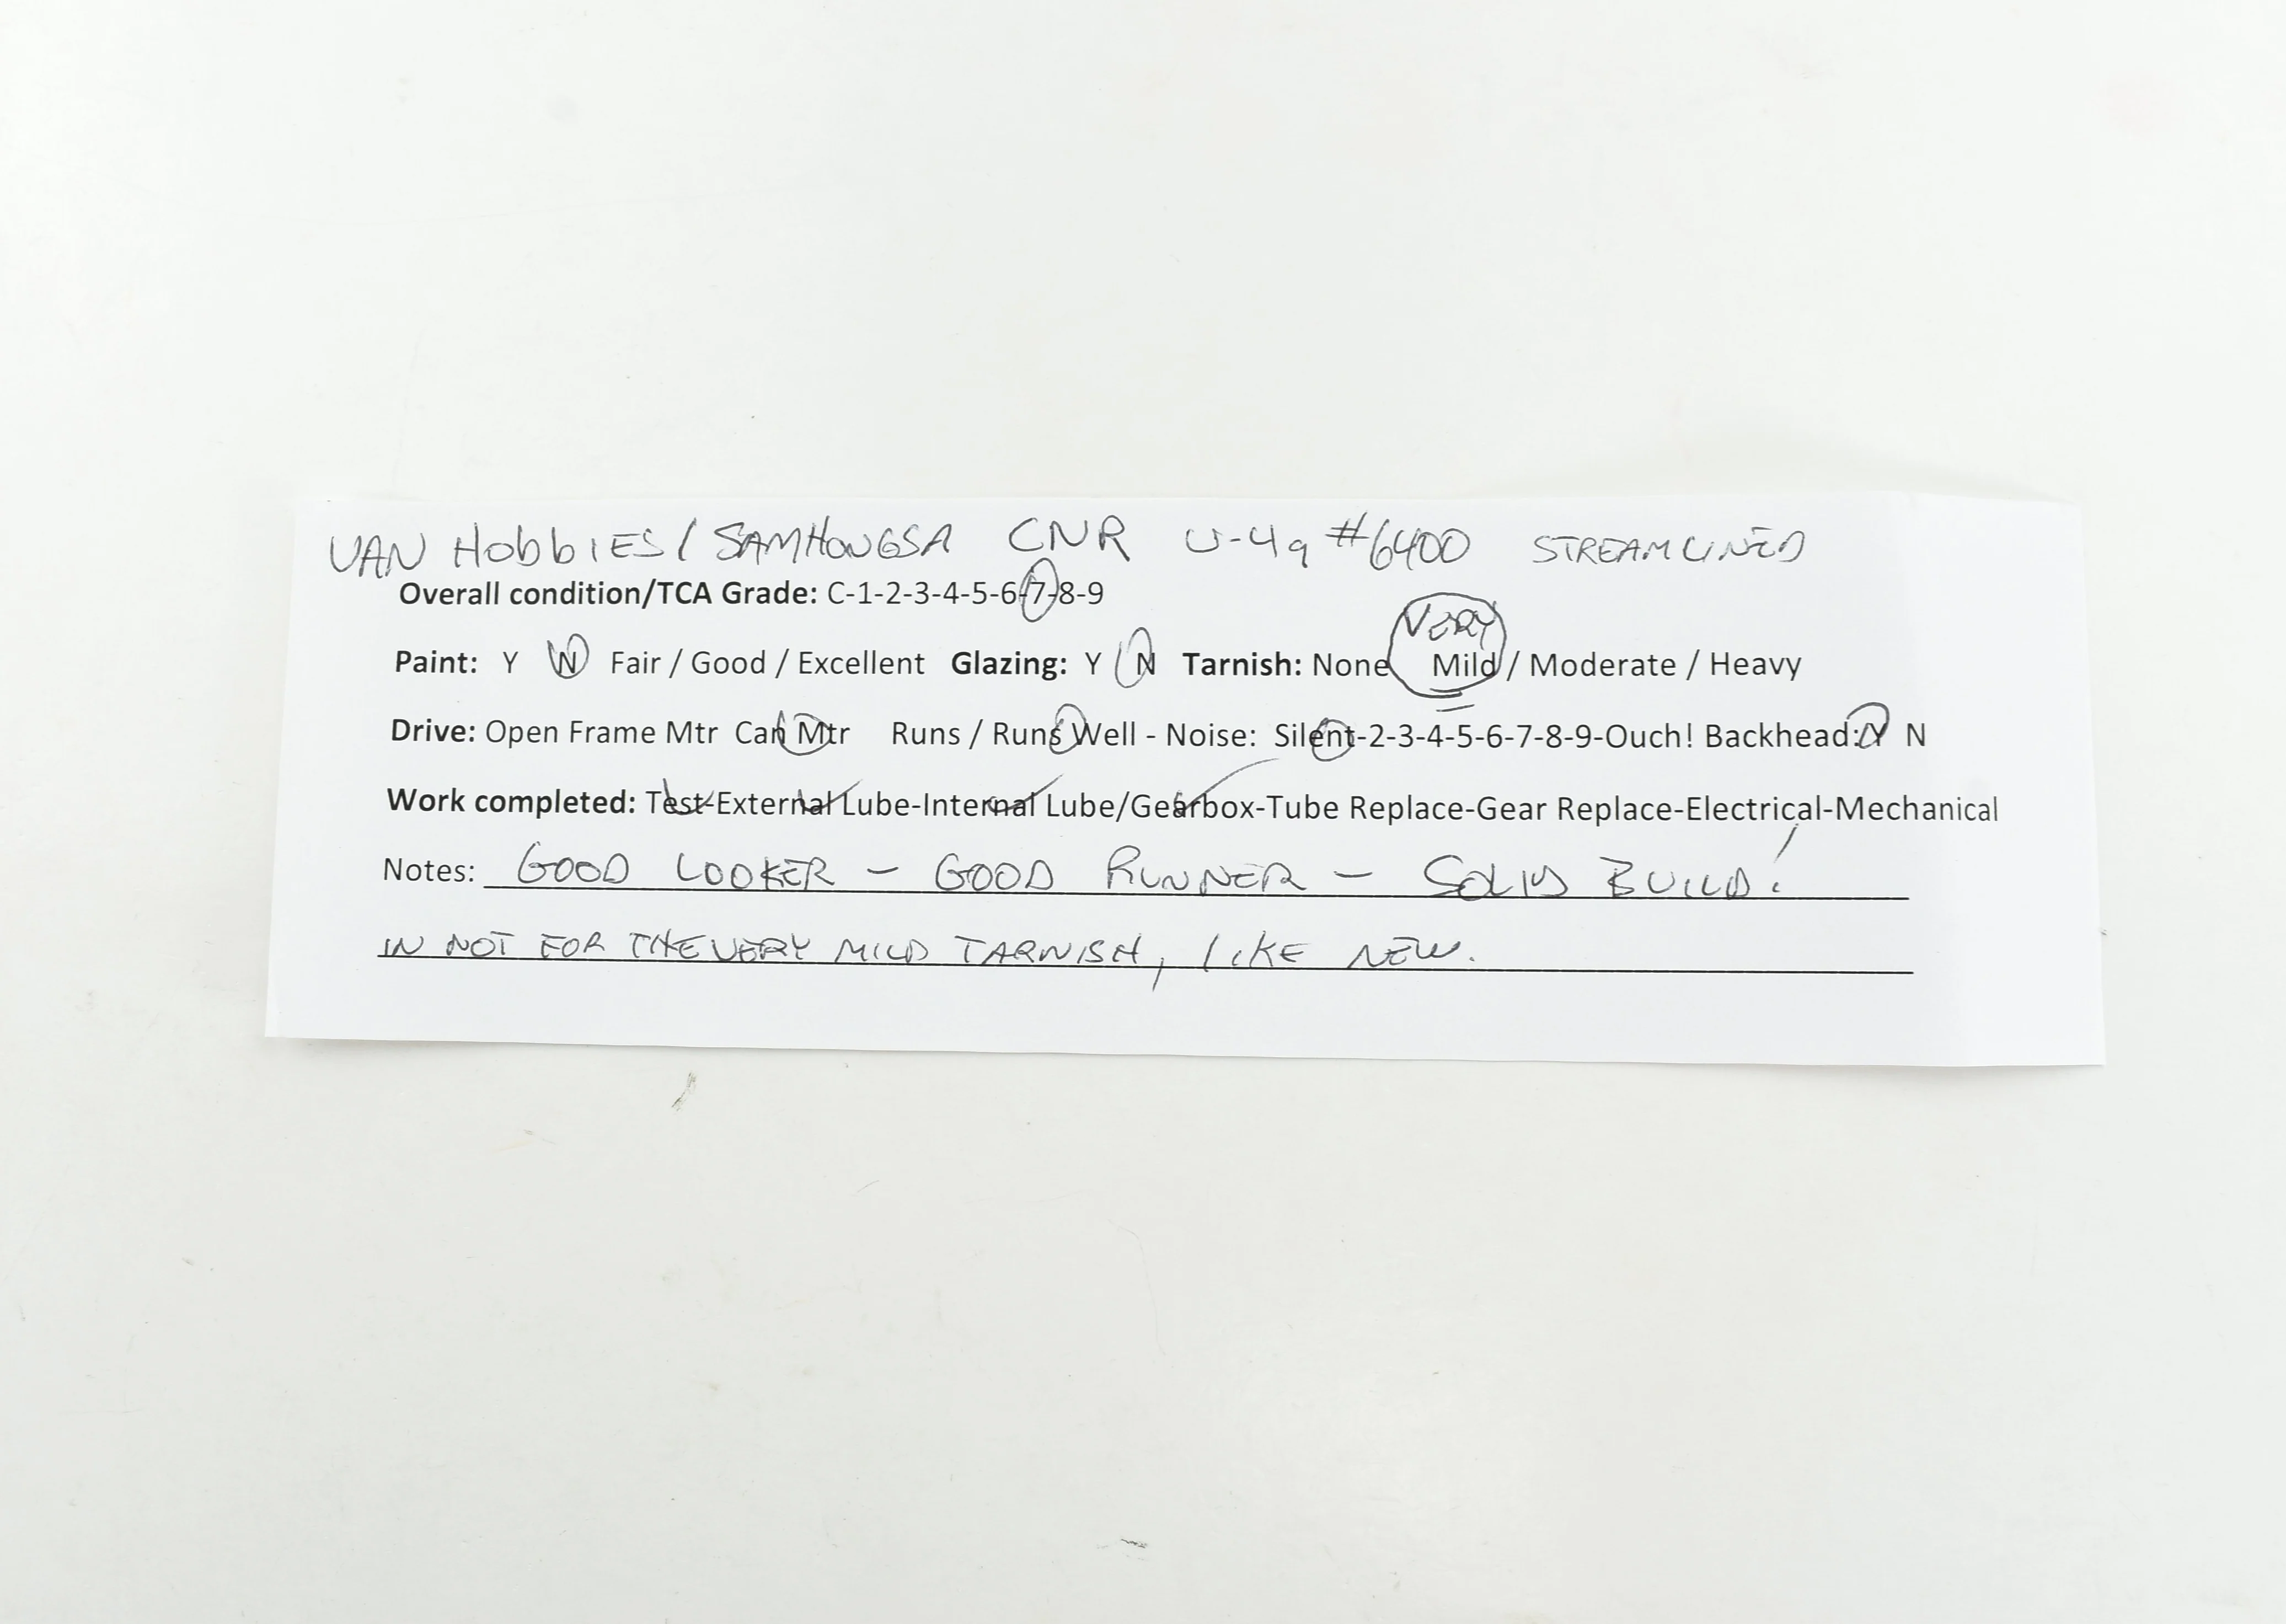 VAN HobbIES / SAMHONGSA CNR U-4a #6400 STREAMLINED
Overall condition/TCA Grade: C-1-2-3-4-5-6-7-8-9
VERY
Paint: Y N Fair / Good / Excellent Glazing: Y N Tarnish: None Mild / Moderate / Heavy
Drive: Open Frame Mtr Can Mtr Runs / Runs Well - Noise: Silent-2-3-4-5-6-7-8-9-Ouch! Backhead: Y N
Work completed: Test-External Lube-Internal Lube/Gearbox-Tube Replace-Gear Replace-Electrical-Mechanical
Notes: GOOD LOOKER - GOOD RUNNER - SOLID BUILD!
IN NOT FOR THE VERY MILD TARNISH, LIKE NEW.